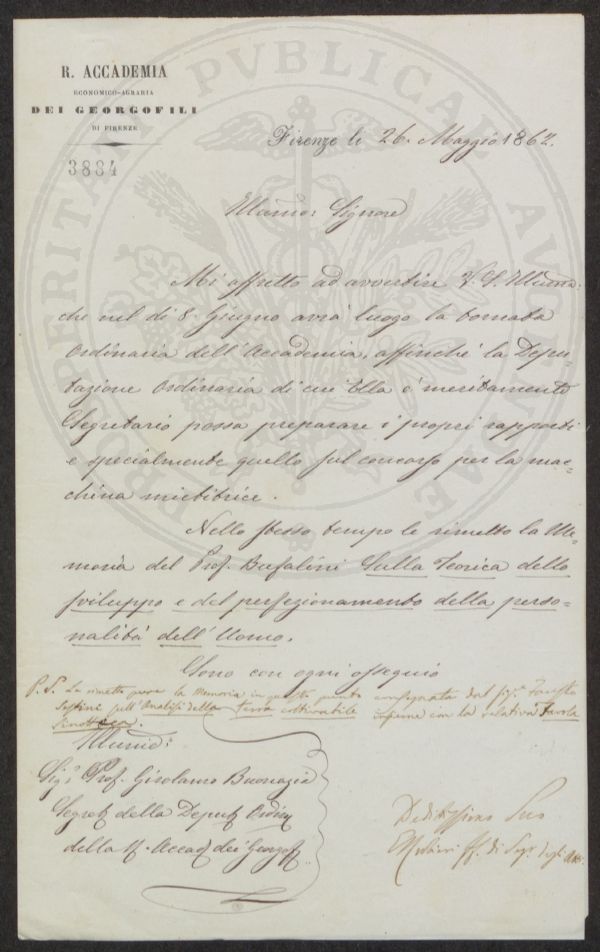 R. ACCADEMIA
ECONOMICO-AGRARIA
DEI GEORGOFILI
DI FIRENZE
3884
Firenze li 26. Maggio 1862.
Illumo: Signore
Mi affretto ad avvertire V. S. Illuma:
che nel dì 8. Giugno avrà luogo la tornata
Ordinaria dell'Accademia, affinchè la Depu-
tazione Ordinaria di cui Ella è meritamente
Segretario possa preparare i propri rapporti
e specialmente quello sul concorso per la mac-
china mietitrice.
Nello stesso tempo le rimetto la Me-
moria del Prof. Bufalini Sulla Teorica dello
sviluppo e del perfezionamento della perso-
nalità dell'Uomo.
Sono con ogni ossequio
P. S. Le rimetto pure la Memoria in questo punto consegnata dal Sigr. Fausto
Sestini sull'Analisi della terra coltivabile insieme con la relativa Tavola
Sinottica.
Sigr. Prof. Girolamo Buonazia
Segret della Deput Ordin
della R. Accad dei Georgof
Devotissimo Suo
ff. di Segr. degli Atti
PROSPERITATI PVBLICAE AVGENDAE